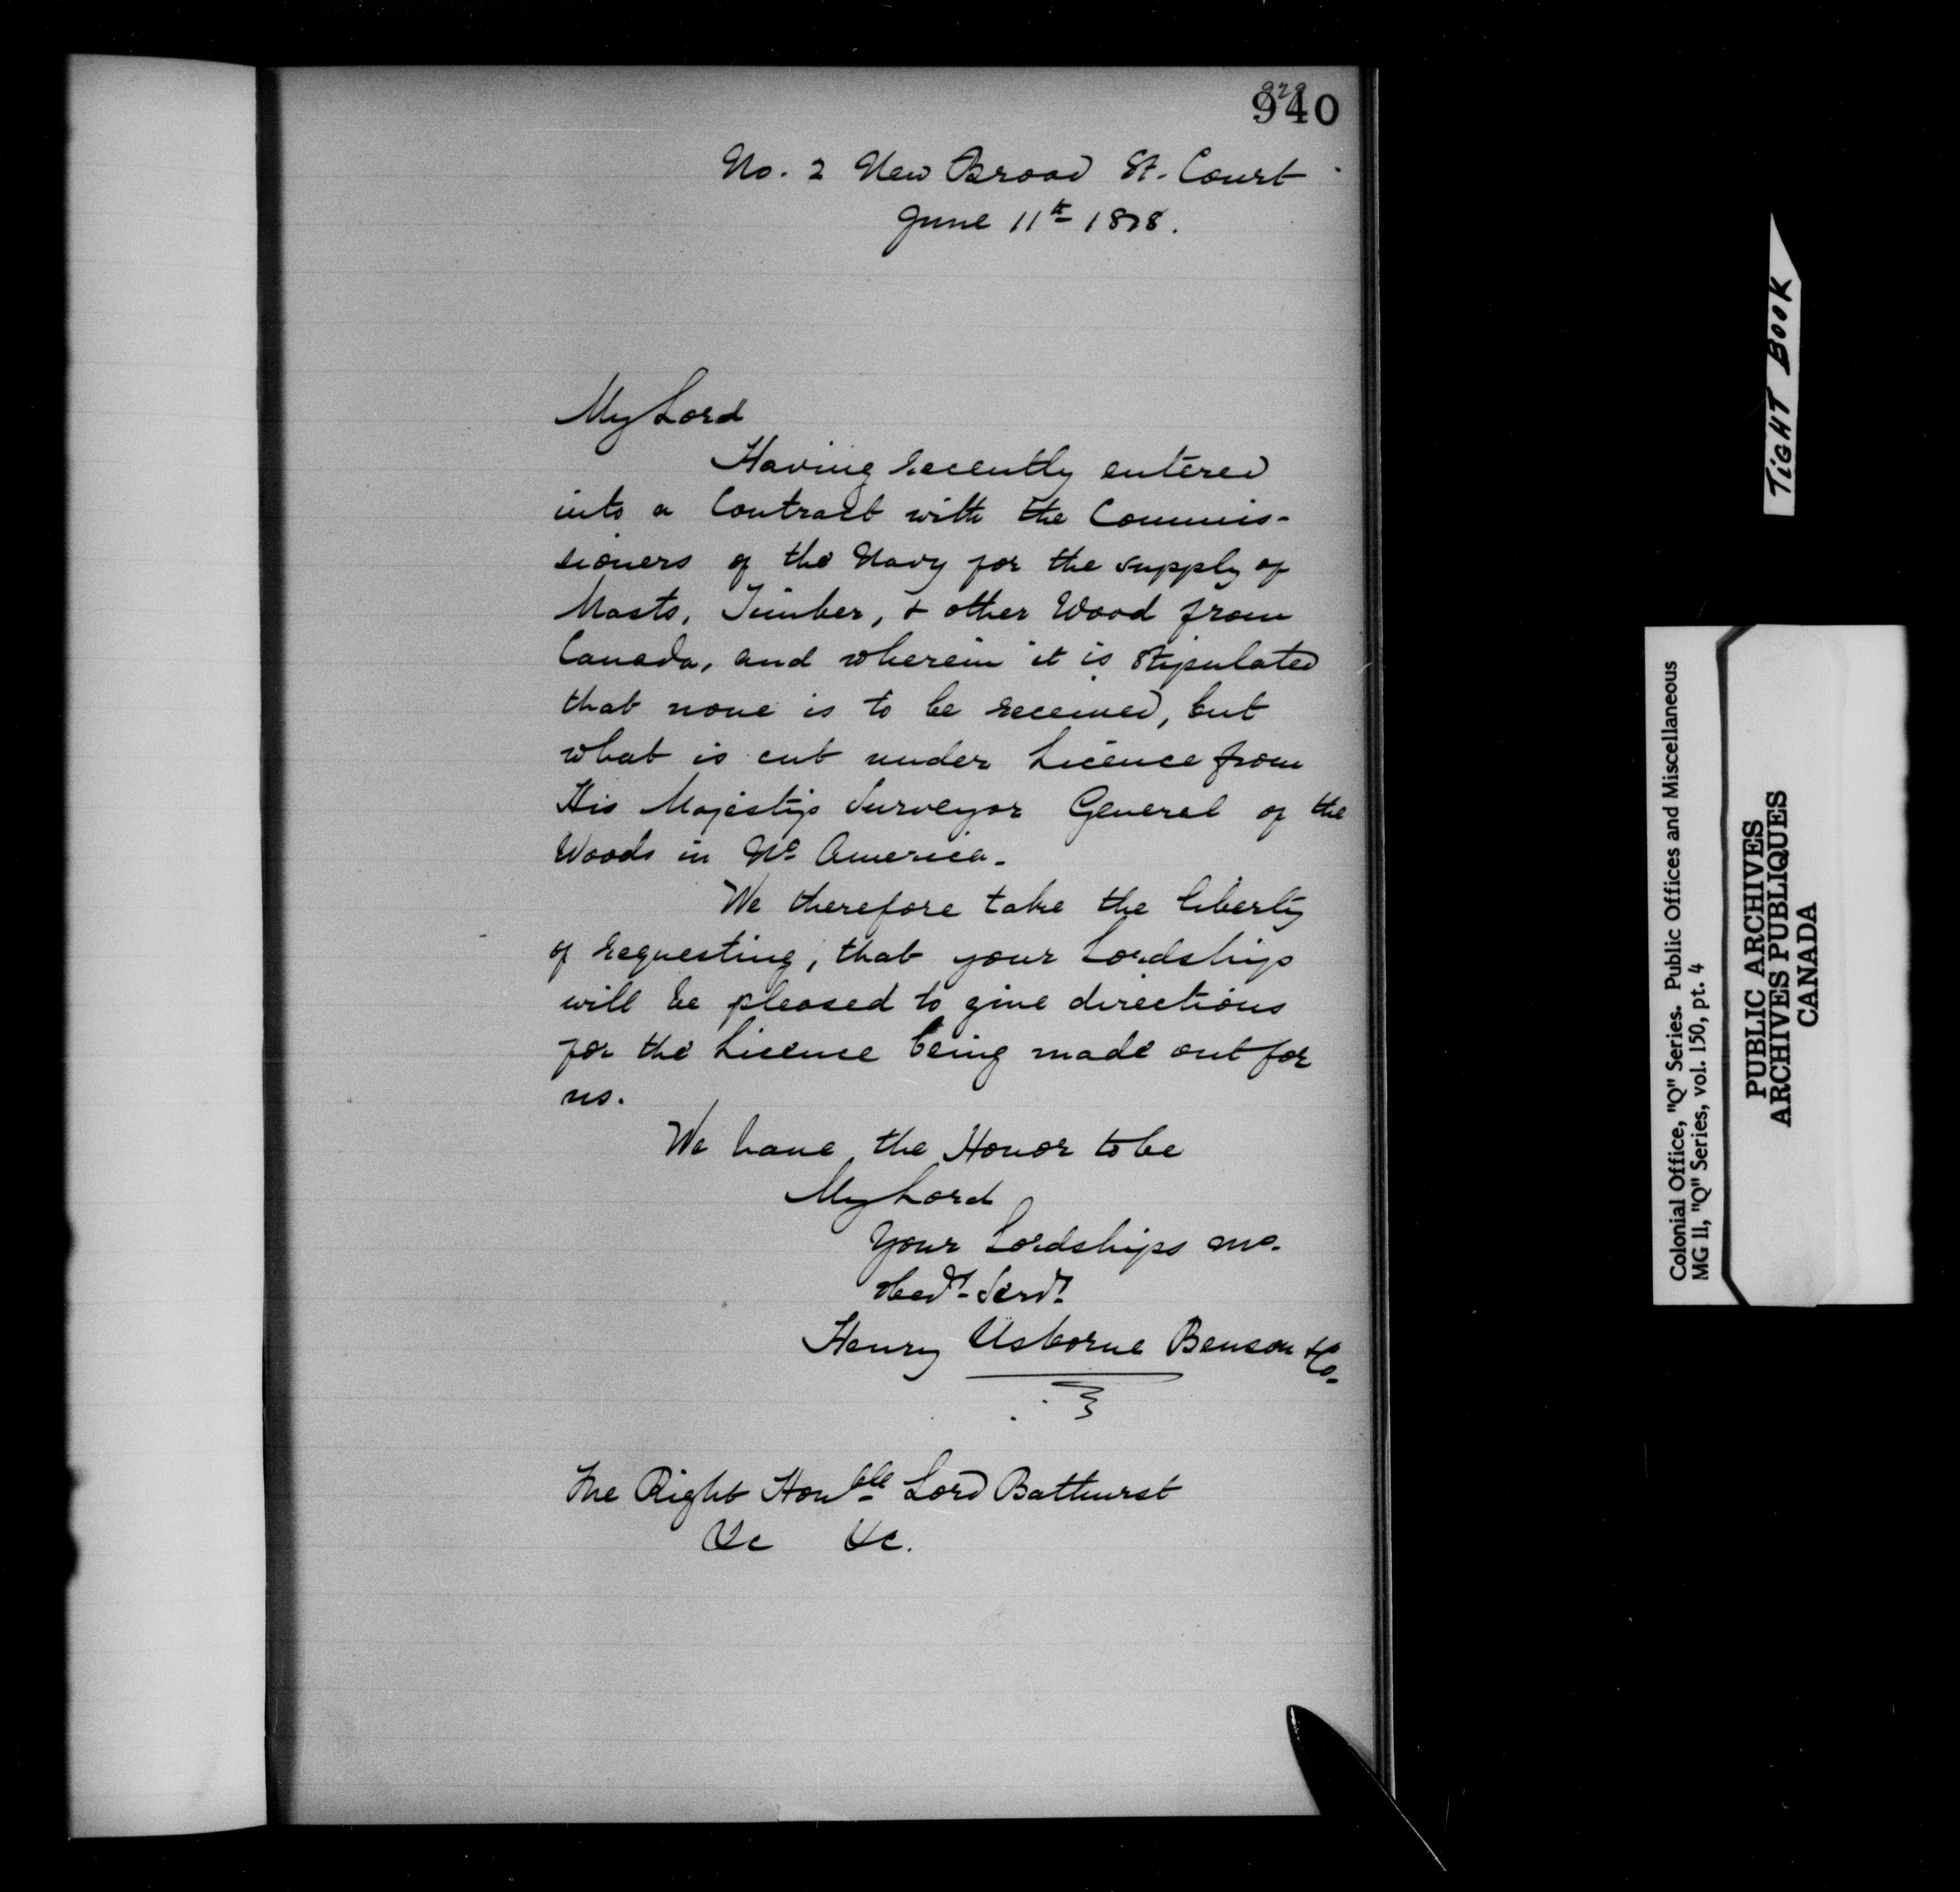 940
No. 2 New Broad St. Court
June 11th 1818.
My Lord
Having recently entered
into a Contract with the Commis-
sioners of the Navy for the supply of
Masts, Timber, & other Wood from
Canada, and wherein it is stipulated
that none is to be received, but
what is cut under Licence from
His Majestys Surveyor General of the
Woods in No America.
We therefore take the liberty
of requesting, that your Lordships
will be pleased to give directions
for the Licence being made out for
us.
We have the Honor to be
My Lord
Your Lordships mo.
obedt. Servt.
Henry Usborne Benson & Co.
The Right Honble Lord Bathurst
&c &c.
TIGHT BOOK
Colonial Office, "Q" Series. Public Offices and Miscellaneous
MG 11, "Q" Series, vol. 150, pt. 4
PUBLIC ARCHIVES
ARCHIVES PUBLIQUES
CANADA